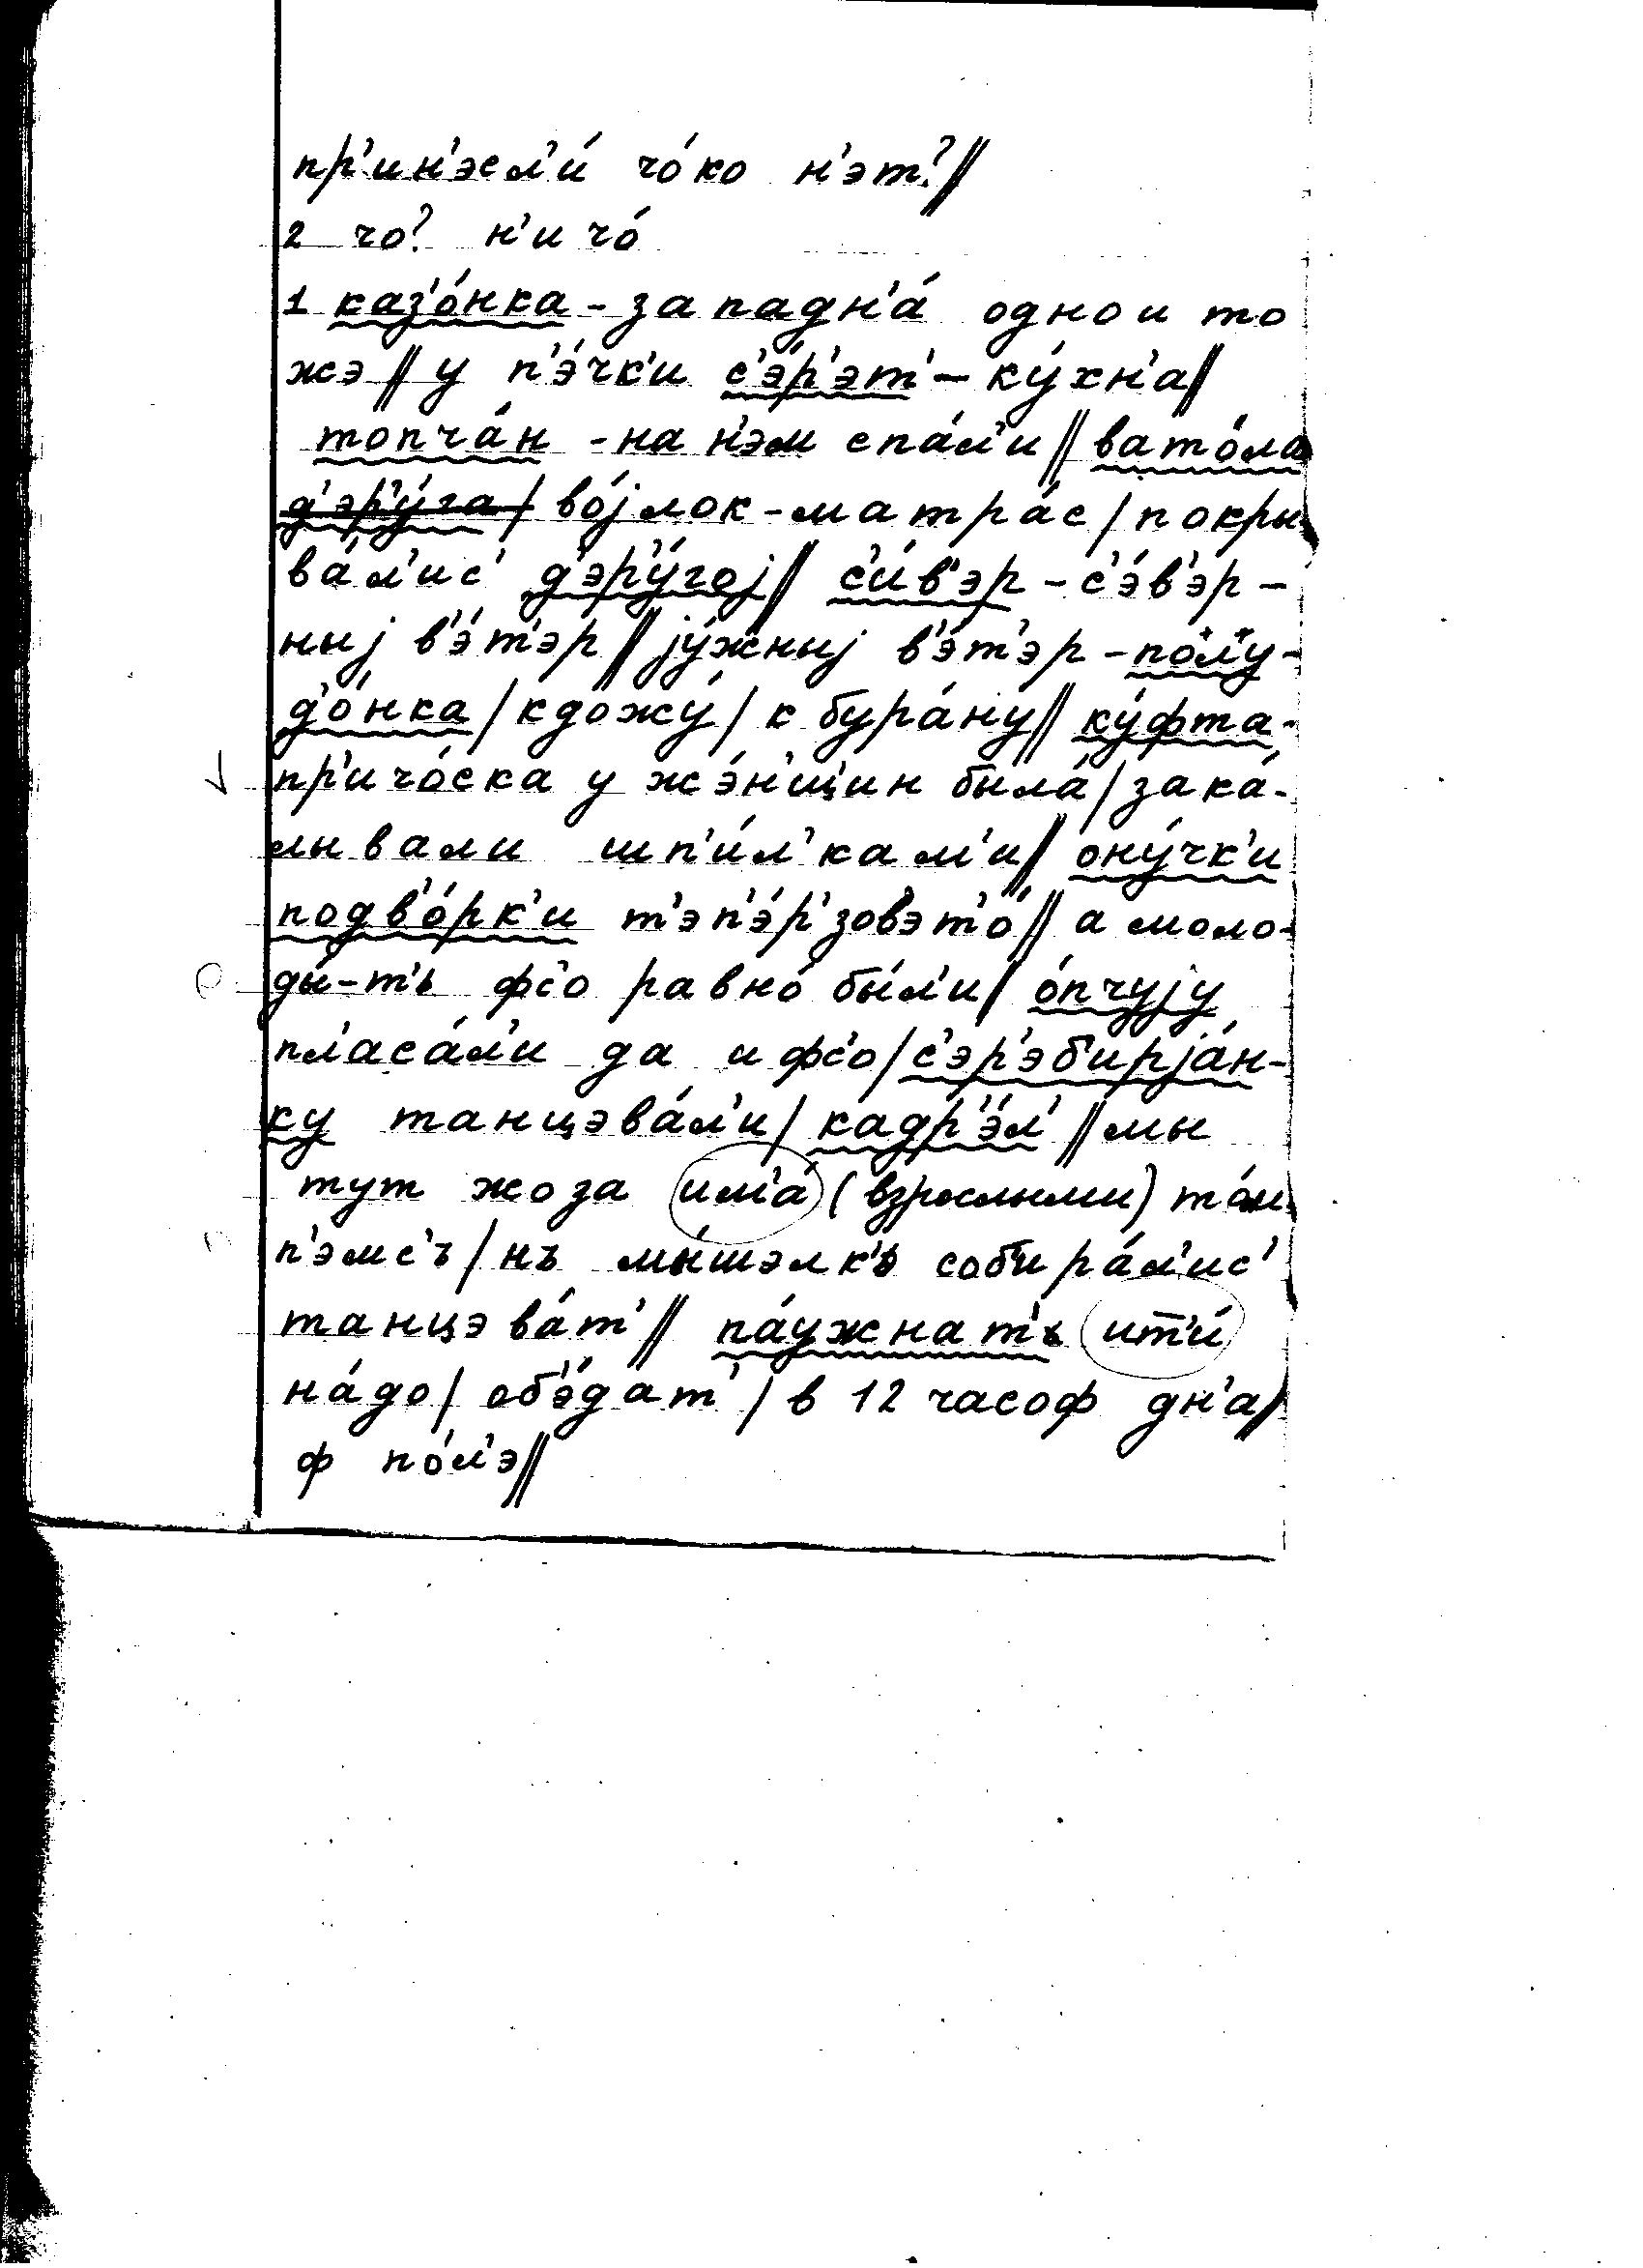 пр'ин'эсл'и́ чо́ко н'эт?//
2 чо? н'ичо́
1 каз'о́нка - западн'а́ одно и то
жэ // у п'э́чк'и с'э́р'эт' - ку́хн'а //
топча́н - на н'эм спа́л'и // вато́ла
д'эр'у́га / во́jлок - матра́с / покры
ва́л'ис' д'эр'у́гоj // с'и́в'эр - с'э́в'эр -
ныj в'э́т'эр // jу́жныj в'э́т'эр - пол'у -
д'о́нка / к дожу́ / к бура́ну // ку́фта -
пр'ичо́ска у жэ́н'щ'ин была́ / зака́ -
лывали шп'и́л'кам'и // ону́чк'и
подв'о́рк'и т'эп'э́р' зов'эт'о́ // а моло -
ды́-т'ь фс'о равно́ бы́л'и / о́пчуjу
пл'аса́л'и да и фс'о / с'эр'эб'ирjа́н -
ку танцэва́л'и / кадр'э́л' // мы
тут жо за им'а́ (взрослыми) то́п
п'эмс'ъ / нъ мы́шэлк'ь соб'ира́л'ис'
танцэва́т' // па́ужнат'ь ит'и́
на́до / об'э́дат' / в 12 часоф дн'а /
ф по́л'э //